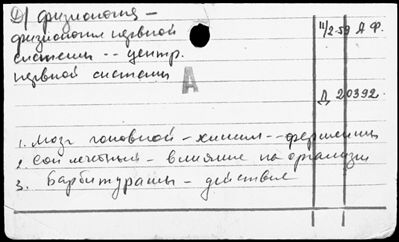 Д) физиология —
физиология нервной
системы -- центр.
нервной системы
II/2-59 А.Ф.
А
Д 20392
1. мозг головной - химизм -- ферменты
2. сон лечебный - влияние на организм
3. Барбитураты - действие